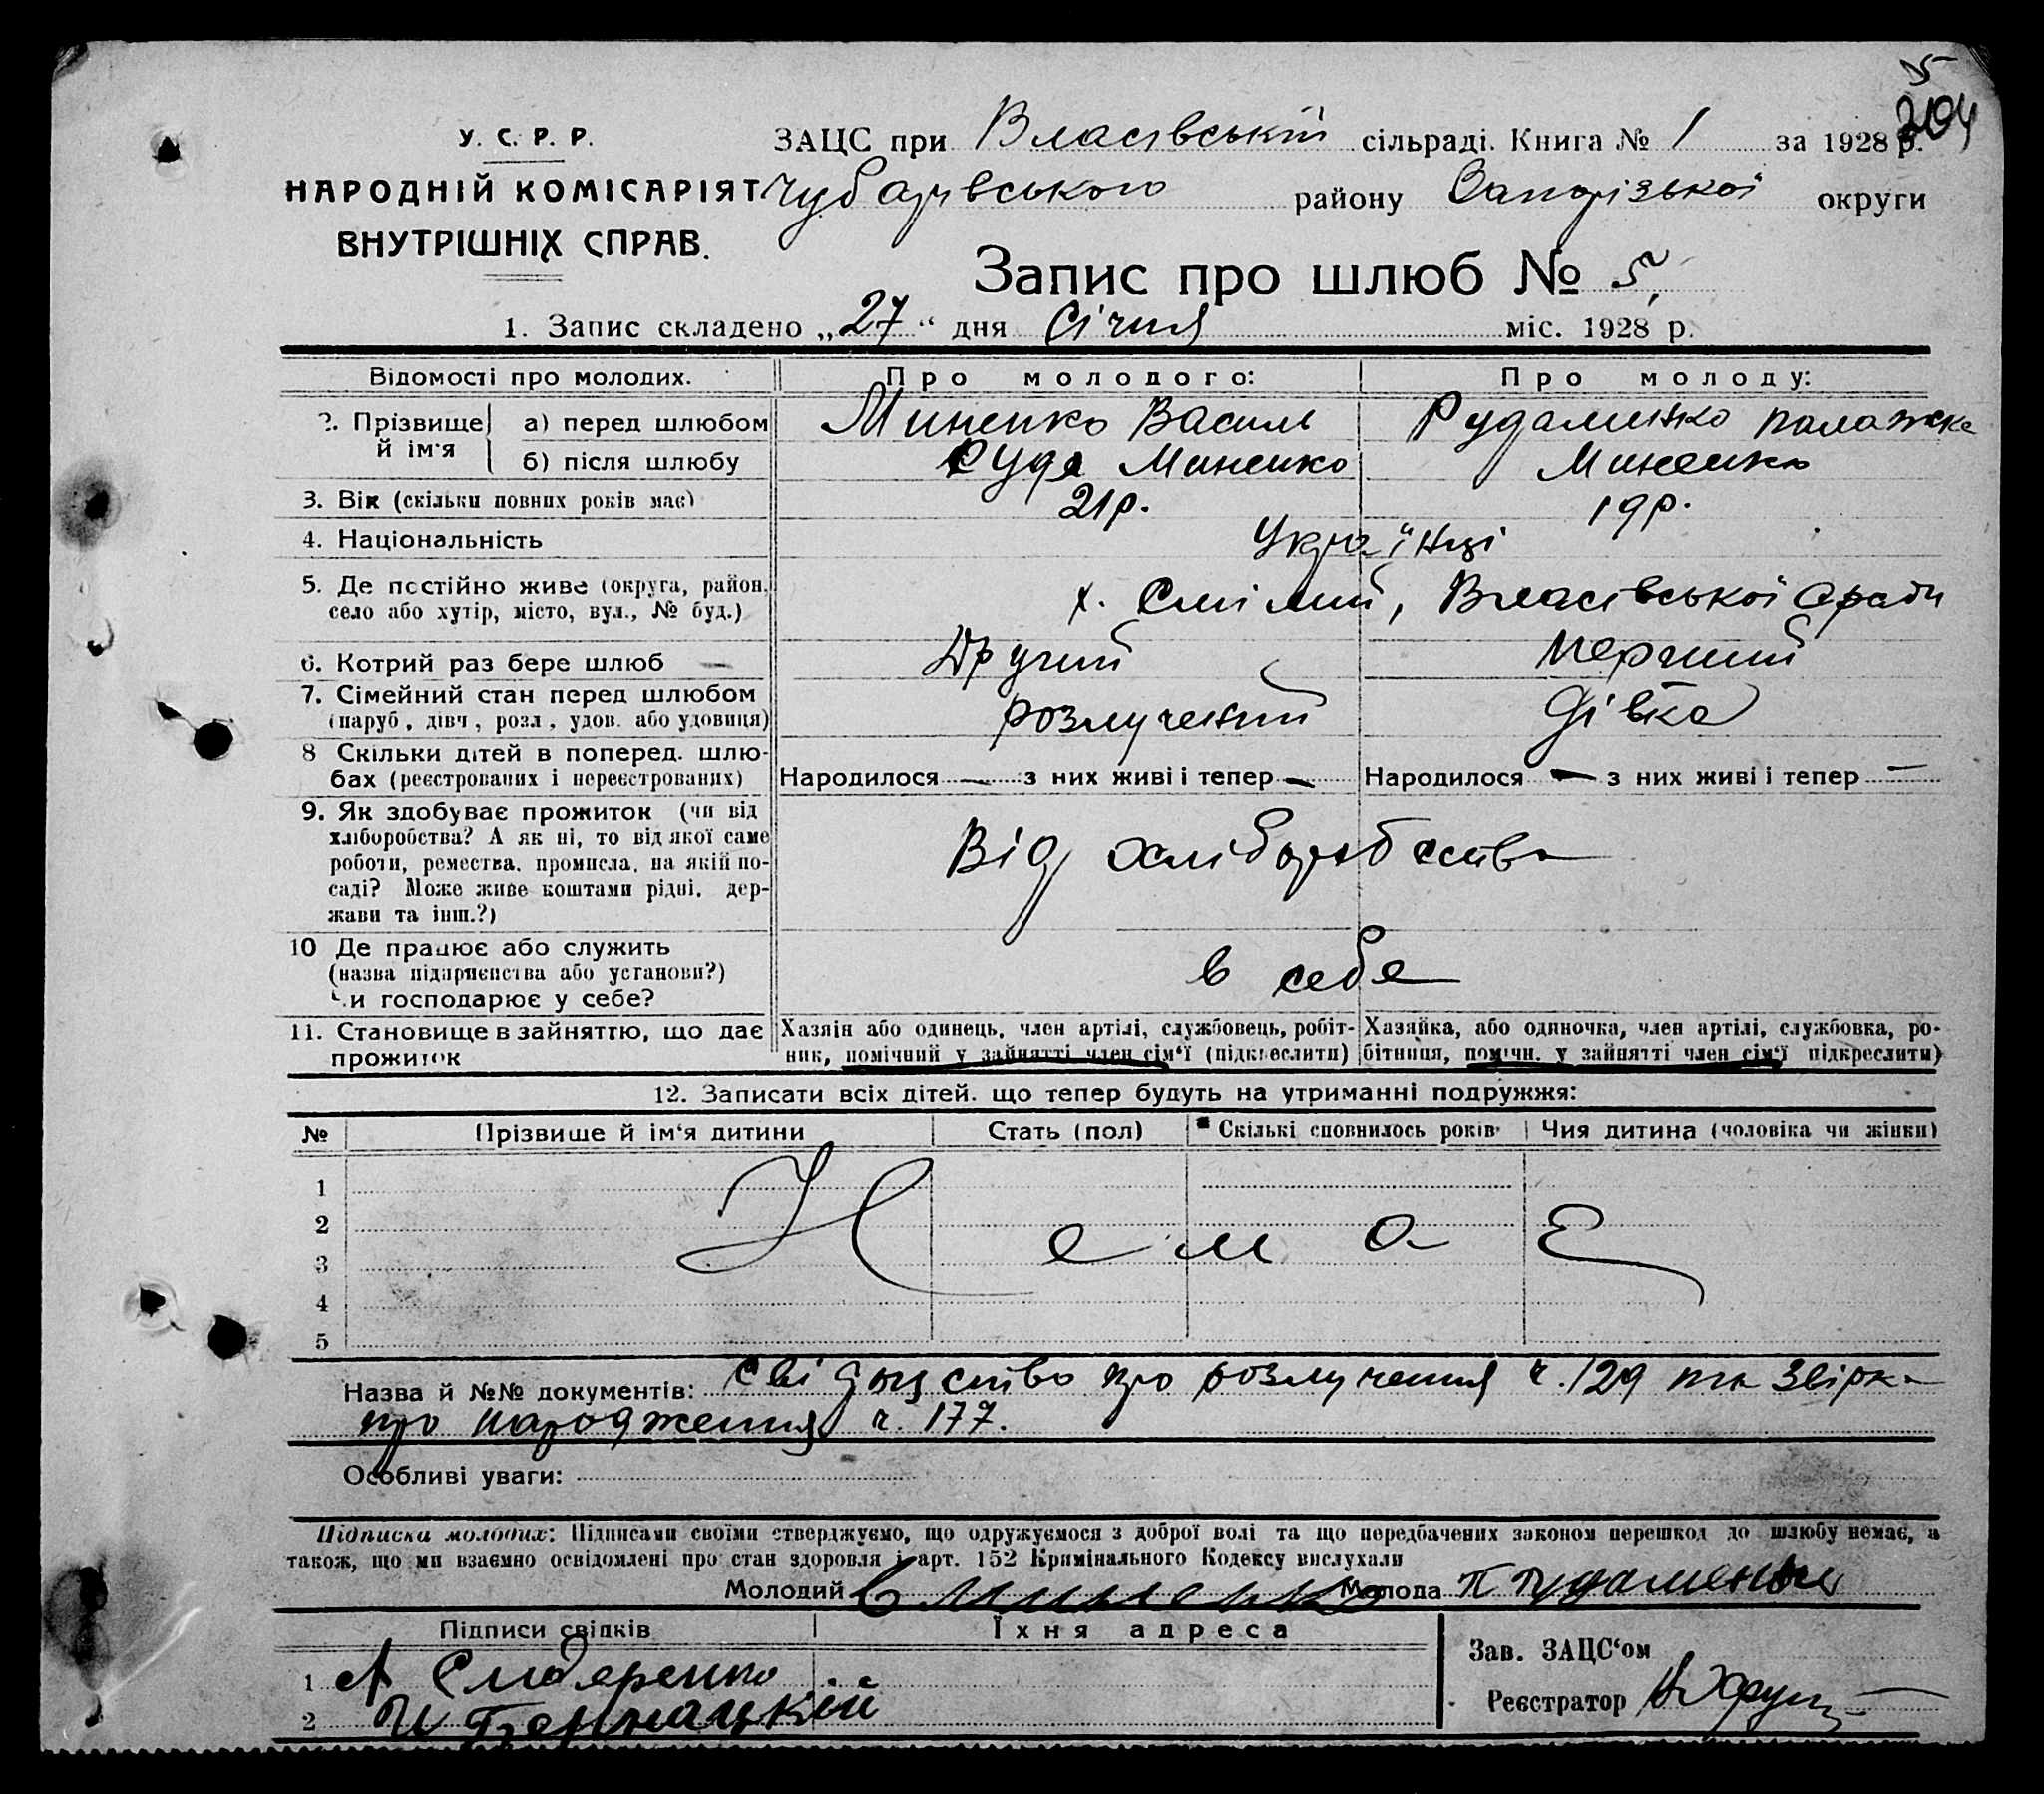 5
204
У. С. Р. Р.
НАРОДНІЙ КОМІСАРІЯТ
ВНУТРІШНІХ СПРАВ.
ЗАЦС при Власівській сільраді. Книга № 1 за 1928 р.
Чубарівського району Запорізької округи
Запис про шлюб № 5
1. Запис складено „27“ дня Січня міс. 1928 р.
Відомості про молодих. Про молодого: Про молоду:
2. Прізвище й ім'я
а) перед шлюбом Миненко Василь Рудаменко Палажка
б) після шлюбу Миненко Миненко
3. Вік (скільки повних років має) 21р. 19р.
4. Національність Українці
5. Де постійно живе (округа, район, село або хутір, місто, вул., № буд.) х. Смілий, Власівської с/ради
6. Котрий раз бере шлюб Другий Перший
7. Сімейний стан перед шлюбом (паруб, дівч, розл, удов. або удовиця) розлучений дівка
8 Скільки дітей в поперед. шлюбах (реєстрованих і нереєстрованих) Народилося — з них живі і тепер — Народилося — з них живі і тепер —
9. Як здобуває прожиток (чи від хліборобства? А як ні, то від якої саме роботи, ремества, промисла, на якій посаді? Може живе коштами рідні, держави та інш.?) Від хліборобства
10 Де працює або служить (назва підприємства або установи?) Чи господарює у себе? в себе
11. Становище в зайняттю, що дає прожиток
Хазяін або одинець, член артілі, службовець, робітник, помічний у зайнятті член сім'ї (підкреслити)
Хазяйка, або одиночка, член артілі, службовка, робітниця, помічн. у зайнятті член сім'ї підкреслити)
12. Записати всіх дітей, що тепер будуть на утриманні подружжя:
№ Прізвище й ім'я дитини Стать (пол) Скількі сповнилось років Чия дитина (чоловіка чи жінки)
1
2
Немає
3
4
5
Назва й №№ документів: Свідоцство про розлучення ч. 129 та Звірка
про народження ч. 177.
Особливі уваги:
Підписка молодих: Підписами своїми стверджуємо, що одружуємося з доброї волі та що передбачених законом перешкод до шлюбу немає, а
також, що ми взаємно освідомлені про стан здоровля і арт. 152 Крямінального Кодексу вислухали
Молодий В Миненко Молода П Рудаменко
Підписи свідків Їхня адреса
Зав. ЗАЦС'ом
1 А
2 И
Реєстратор